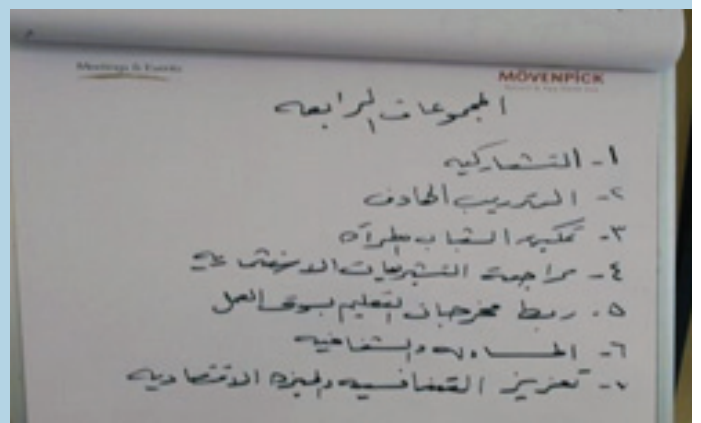 Meetings & Events
MÖVENPICK
المجموعات الرابعه
١- التشاركيه
٢- التدريب الهادف
٣- تمكين الشباب والمرأه
٤- مراجعة التشريعات الاجتماعيه
٥- ربط مخرجات التعليم بسوق العمل
٦- المساءله والشفافيه
٧- تعزيز التنافسيه والميزه الاقتصاديه